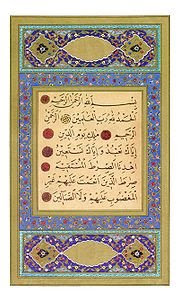 بِسْمِ اللَّهِ الرَّحْمٰنِ الرَّحِيمِ
اَلْحَمْدُ لِلَّهِ رَبِّ الْعَالَمِينَ الرَّحْمٰنِ
الرَّحِيمِ مٰلِكِ يَوْمِ الدِّينِ
اِيَّاكَ نَعْبُدُ وَاِيَّاكَ نَسْتَعِينُ
اِهْدِنَا الصِّرَاطَ الْمُسْتَقِيمَ
صِرَاطَ الَّذِينَ اَنْعَمْتَ عَلَيْهِمْ غَيْرِ
الْمَغْضُوبِ عَلَيْهِمْ وَلَا الضَّالِّينَ